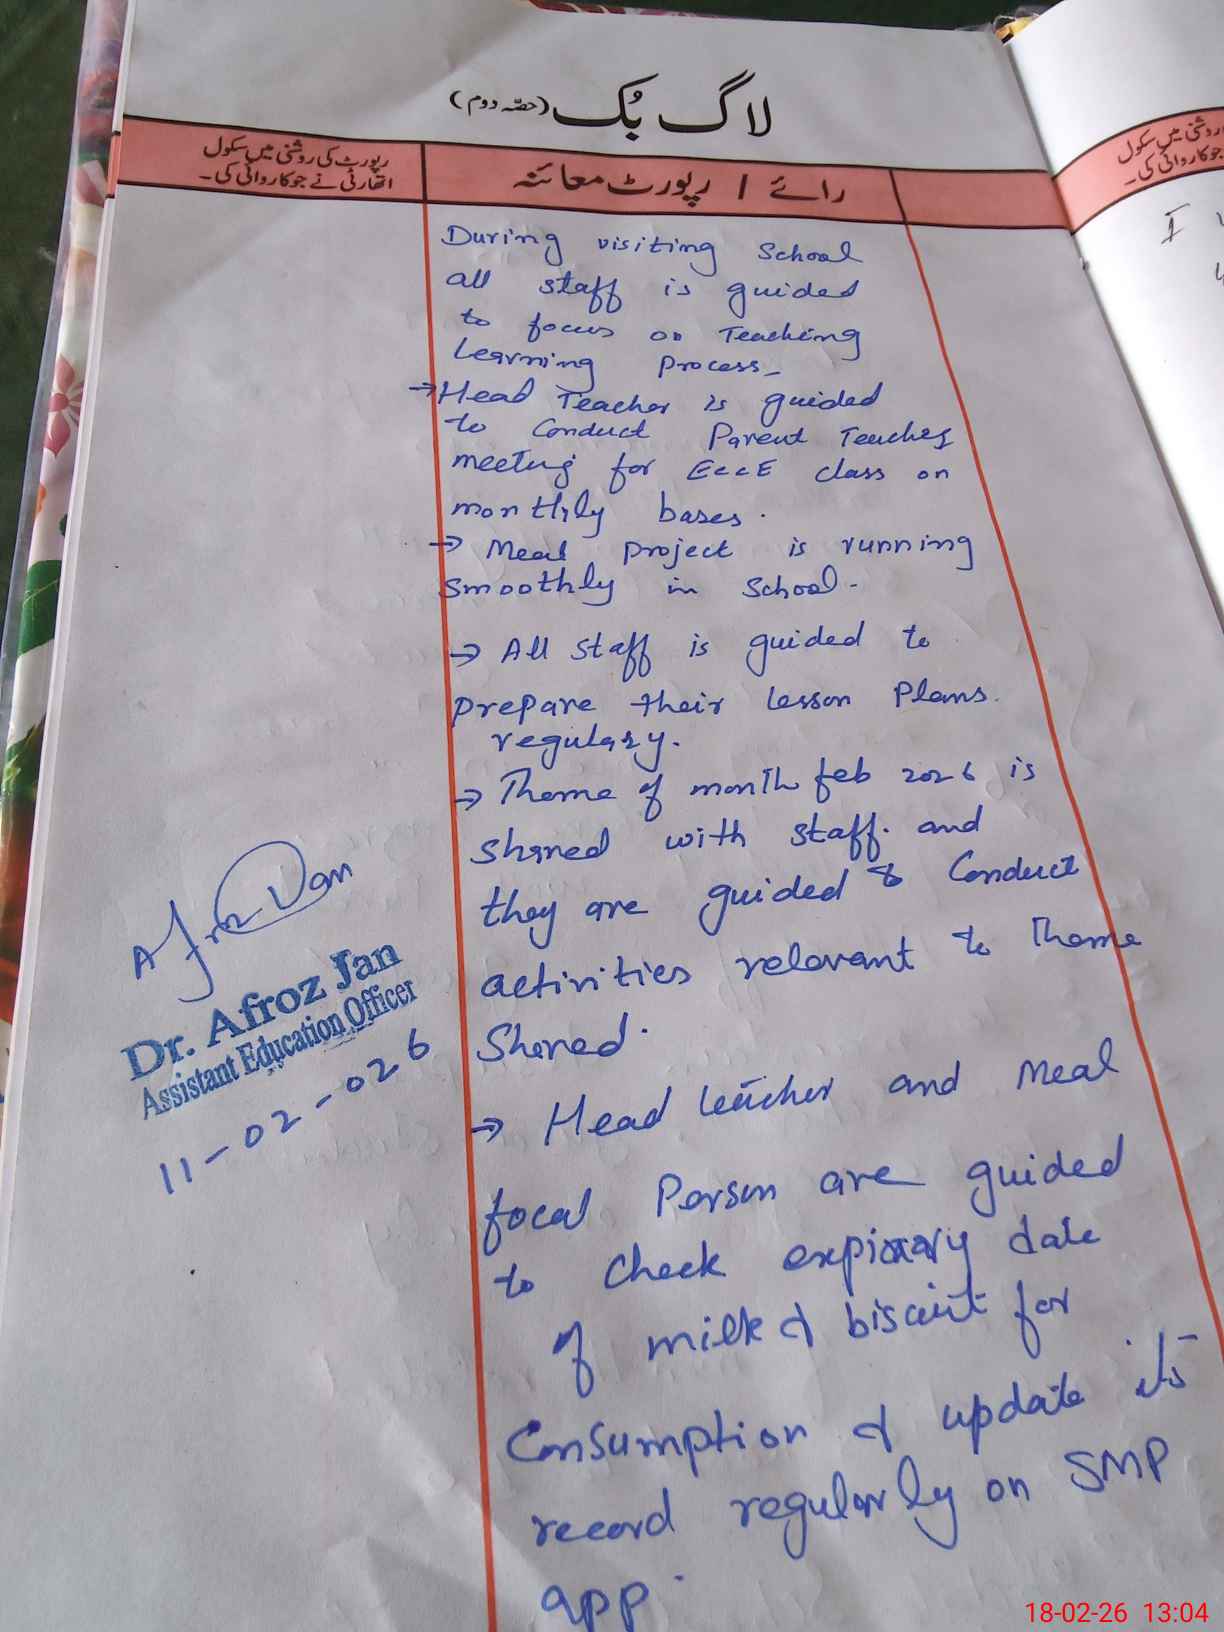 لاگ بُک (حصّہ دوم)
رپورٹ کی روشنی میں سکول
اتھارٹی نے جو کاروائی کی۔
رائے / رپورٹ معائنہ
During visiting School
all staff is guided
to focus on Teaching
Learning Process_
→Head Teacher is guided
to Conduct Parent Teacher
meeting for EccE class on
monthly bases.
→ Meal project is running
smoothly in School.
→ All staff is guided to
prepare their lesson Plans.
regulary.
→ Theme of month feb 2026 is
shared with staff. and
they are guided to Conduct
activities relevant to Theme
Shared.
→ Head teacher and Meal
focal Person are guided
to Check expiary date
of milk & biscuit for
Consumption & update its
record regularly on SMP
app.
Afroz Jan
Dr. Afroz Jan
Assistant Education Officer
11-02-026
روشنی میں سکول
جو کاروائی کی۔
I
18-02-26 13:04